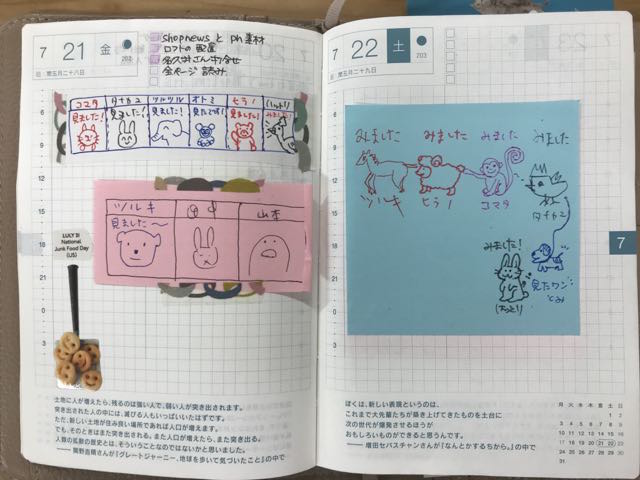 7 21 金 203
旧 閏五月二十八日
shopnewsと ph素材
ロフトの配置
名久井さん打合せ
全ページ読み
コマタ タナカユ ツルツル オトミ ヒラノ ハットリ
見ました! 見ました! 見ました! みたです! 見ました! みました!
ツルキ 山本
見ました〜
LULY 21
National
Junk Food Day
(US)
6
9
12
15
18
21
0
3
土地に人が増えたら、残るのは強い人で、弱い人が突き出されます。
突き出された人の中には、滅びる人もいっぱいいたはずです。
ただ、新しい土地が住み良い場所であれば人口が増えます。
でも、そのときはまた突き出される。また人口が増えたら、また突き出る。
人類の拡散の歴史とは、そういうことなのではないかと思いました。
──関野吉晴さんが『グレートジャーニー、地球を歩いて気づいたこと』の中で
7 22 土 203
旧 閏五月二十九日
みました みました みました みました
ツルキ ヒラノ コマタ タナカユ
みました!
見たワン
とみ
ハットリ
7
ぼくは、新しい表現というのは、
これまで大先輩たちが築き上げてきたものを土台に
次の世代が爆発させるほうが
おもしろいものができると思うんです。
──増田セバスチャンさんが『なんとかするちから。』の中で
月 火 水 木 金 土 日
1 2
3 4 5 6 7 8 9
10 11 12 13 14 15 16
17 18 19 20 21 22 23
24 25 26 27 28 29 30
31